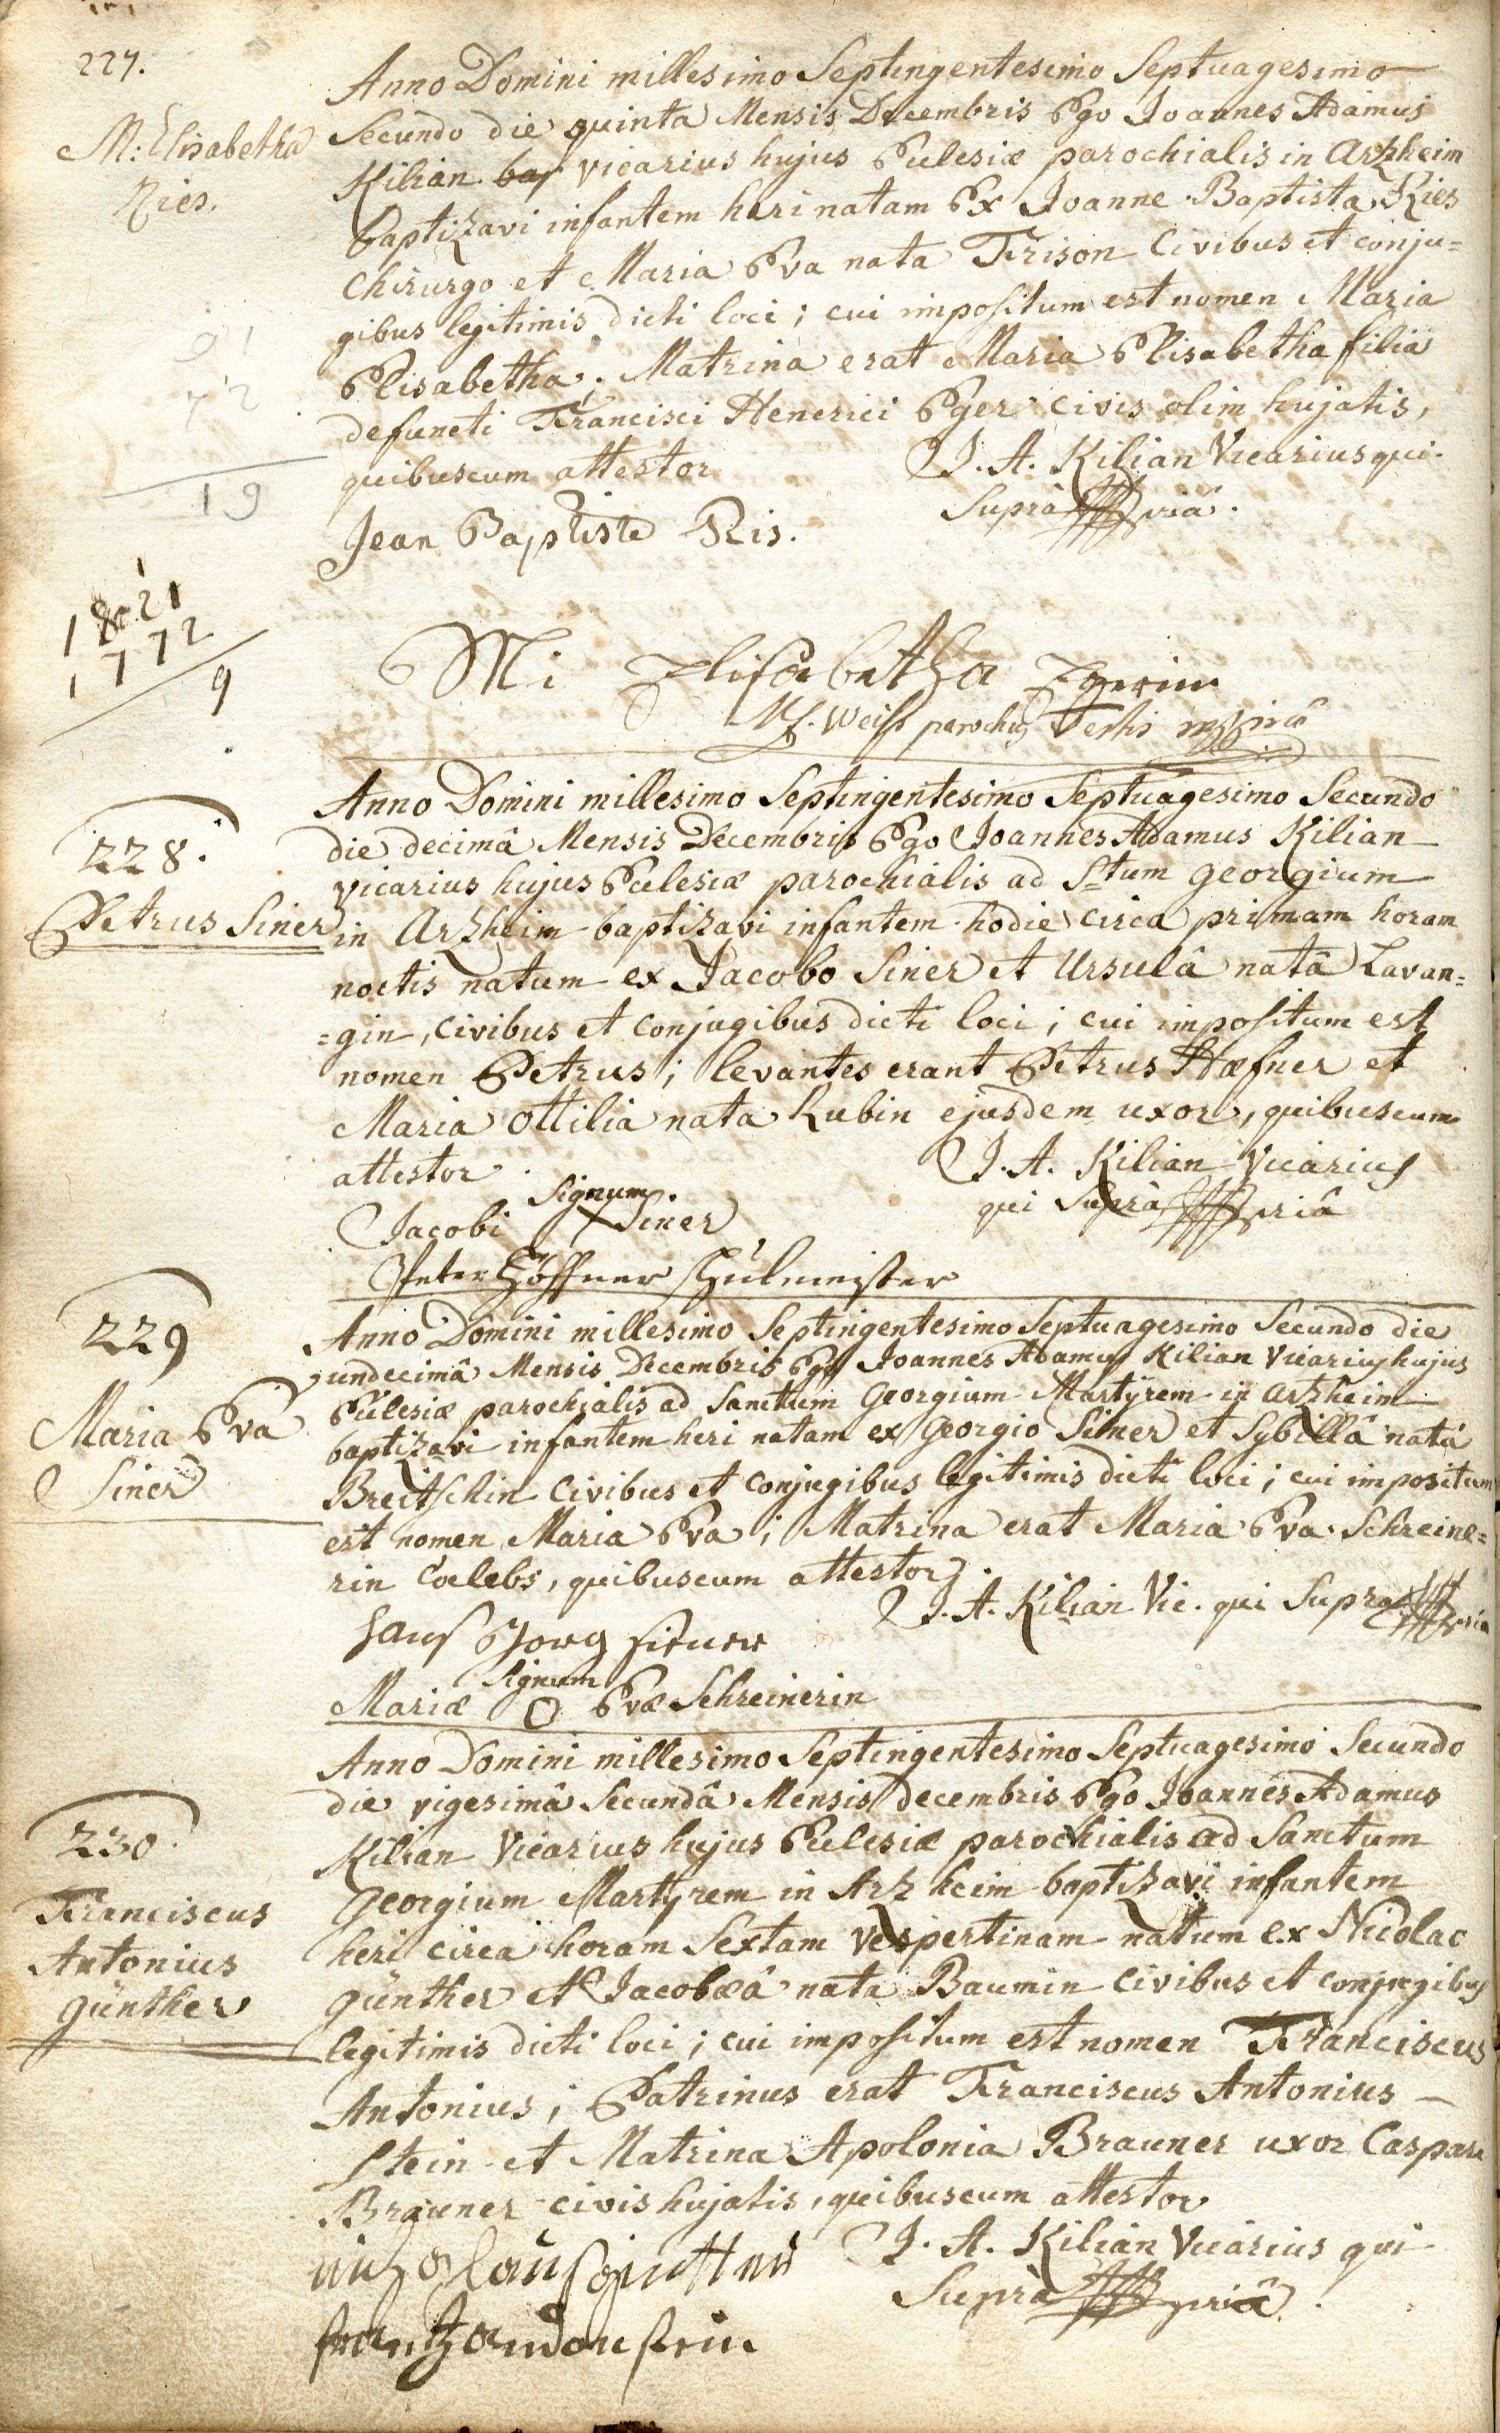 227.
M: Elisabetha
Ries.
Anno Domini millesimo Septingentesimo Septuagesimo
Secundo die quinta Mensis Decembris Ego Joannes Adamus
Kilian bap vicarius hujus Eclesiæ parochialis in Arzheim
baptizavi infantem heri natam Ex Joanne Baptista Ries
Chirurgo et Maria Eva nata Frison Civibus et conju=
gibus legitimis dicti loci; cui impositum est nomen Maria
Elisabetha; Matrina erat Maria Elisabetha filia
defuncti Francisci Henerici Eger civis olim hujatis,
quibuscum attestor
J. A. Kilian Vicarius qui
Suprà pria.
Jean Baptiste Ris.
91
72
19
1821
1772
9
Mi Elisabetha Egerin
Weiss parochus Testis
228.
Petrus Siner
Anno Domini millesimo Septingentesimo Septuagesimo Secundo
die decimâ Mensis Decembris Ego Joannes Adamus Kilian
vicarius hujus Eclesiæ parochialis ad Stum georgium
in Arzheim baptizavi infantem hodie circa primam horam
noctis natum ex Jacobo Siner et Ursulâ natâ Lavan=
=gin, civibus et conjugibus dicti loci; cui impositum est
nomen Petrus; levantes erant Petrus Hæfner et
Maria Ottilia nata Rubin ejusdem uxor, quibuscum
attestor
J. A. Kilian Vicarius
qui Suprà priâ
Signum
Jacobi X Siner
Peter Höffner schulmeister
229
Maria Eva
Siner
Anno Domini millesimo Septingentesimo Septuagesimo Secundo die
undecimâ Mensis Decembris Ego Joannes Adamus Kilian Vicarius hujus
Eclesiæ parochialis ad Sanctum Georgium Martyrem in Arzheim
baptizavi infantem heri natam ex Georgio Siner et Sybillâ natâ
Breitschin Civibus et conjugibus legitimis dicti loci; cui impositum
est nomen Maria Eva; Matrina erat Maria Eva Schreine=
rin Cœlebs, quibuscum attestor.
J. A. Kilian Vic. qui Supra pria
Hans Gorg siner
Signum
Mariæ O Evæ Schreinerin
230.
Franciscus
Antonius
günther
Anno Domini millesimo Septingentesimo Septuagesimo Secundo
die vigesimâ Secundâ Mensis decembris Ego Joannes Adamus
Kilian Vicarius hujus Eclesiæ parochialis ad Sanctum
Georgium Martyrem in Arzheim baptizavi infantem
heri circa horam Sextam vespertinam natum ex Nicolao
günther et Jacobæâ nata Baumin civibus et conjugibus
legitimis dicti loci; cui impositum est nomen Franciscus
Antonius; Patrinus erat Franciscus Antonius
Stein et Matrina Apolonia Brauner uxor Caspari
Brauner civis hujatis, quibuscum attestor
J. A. Kilian Vicarius qui
Suprà priâ.